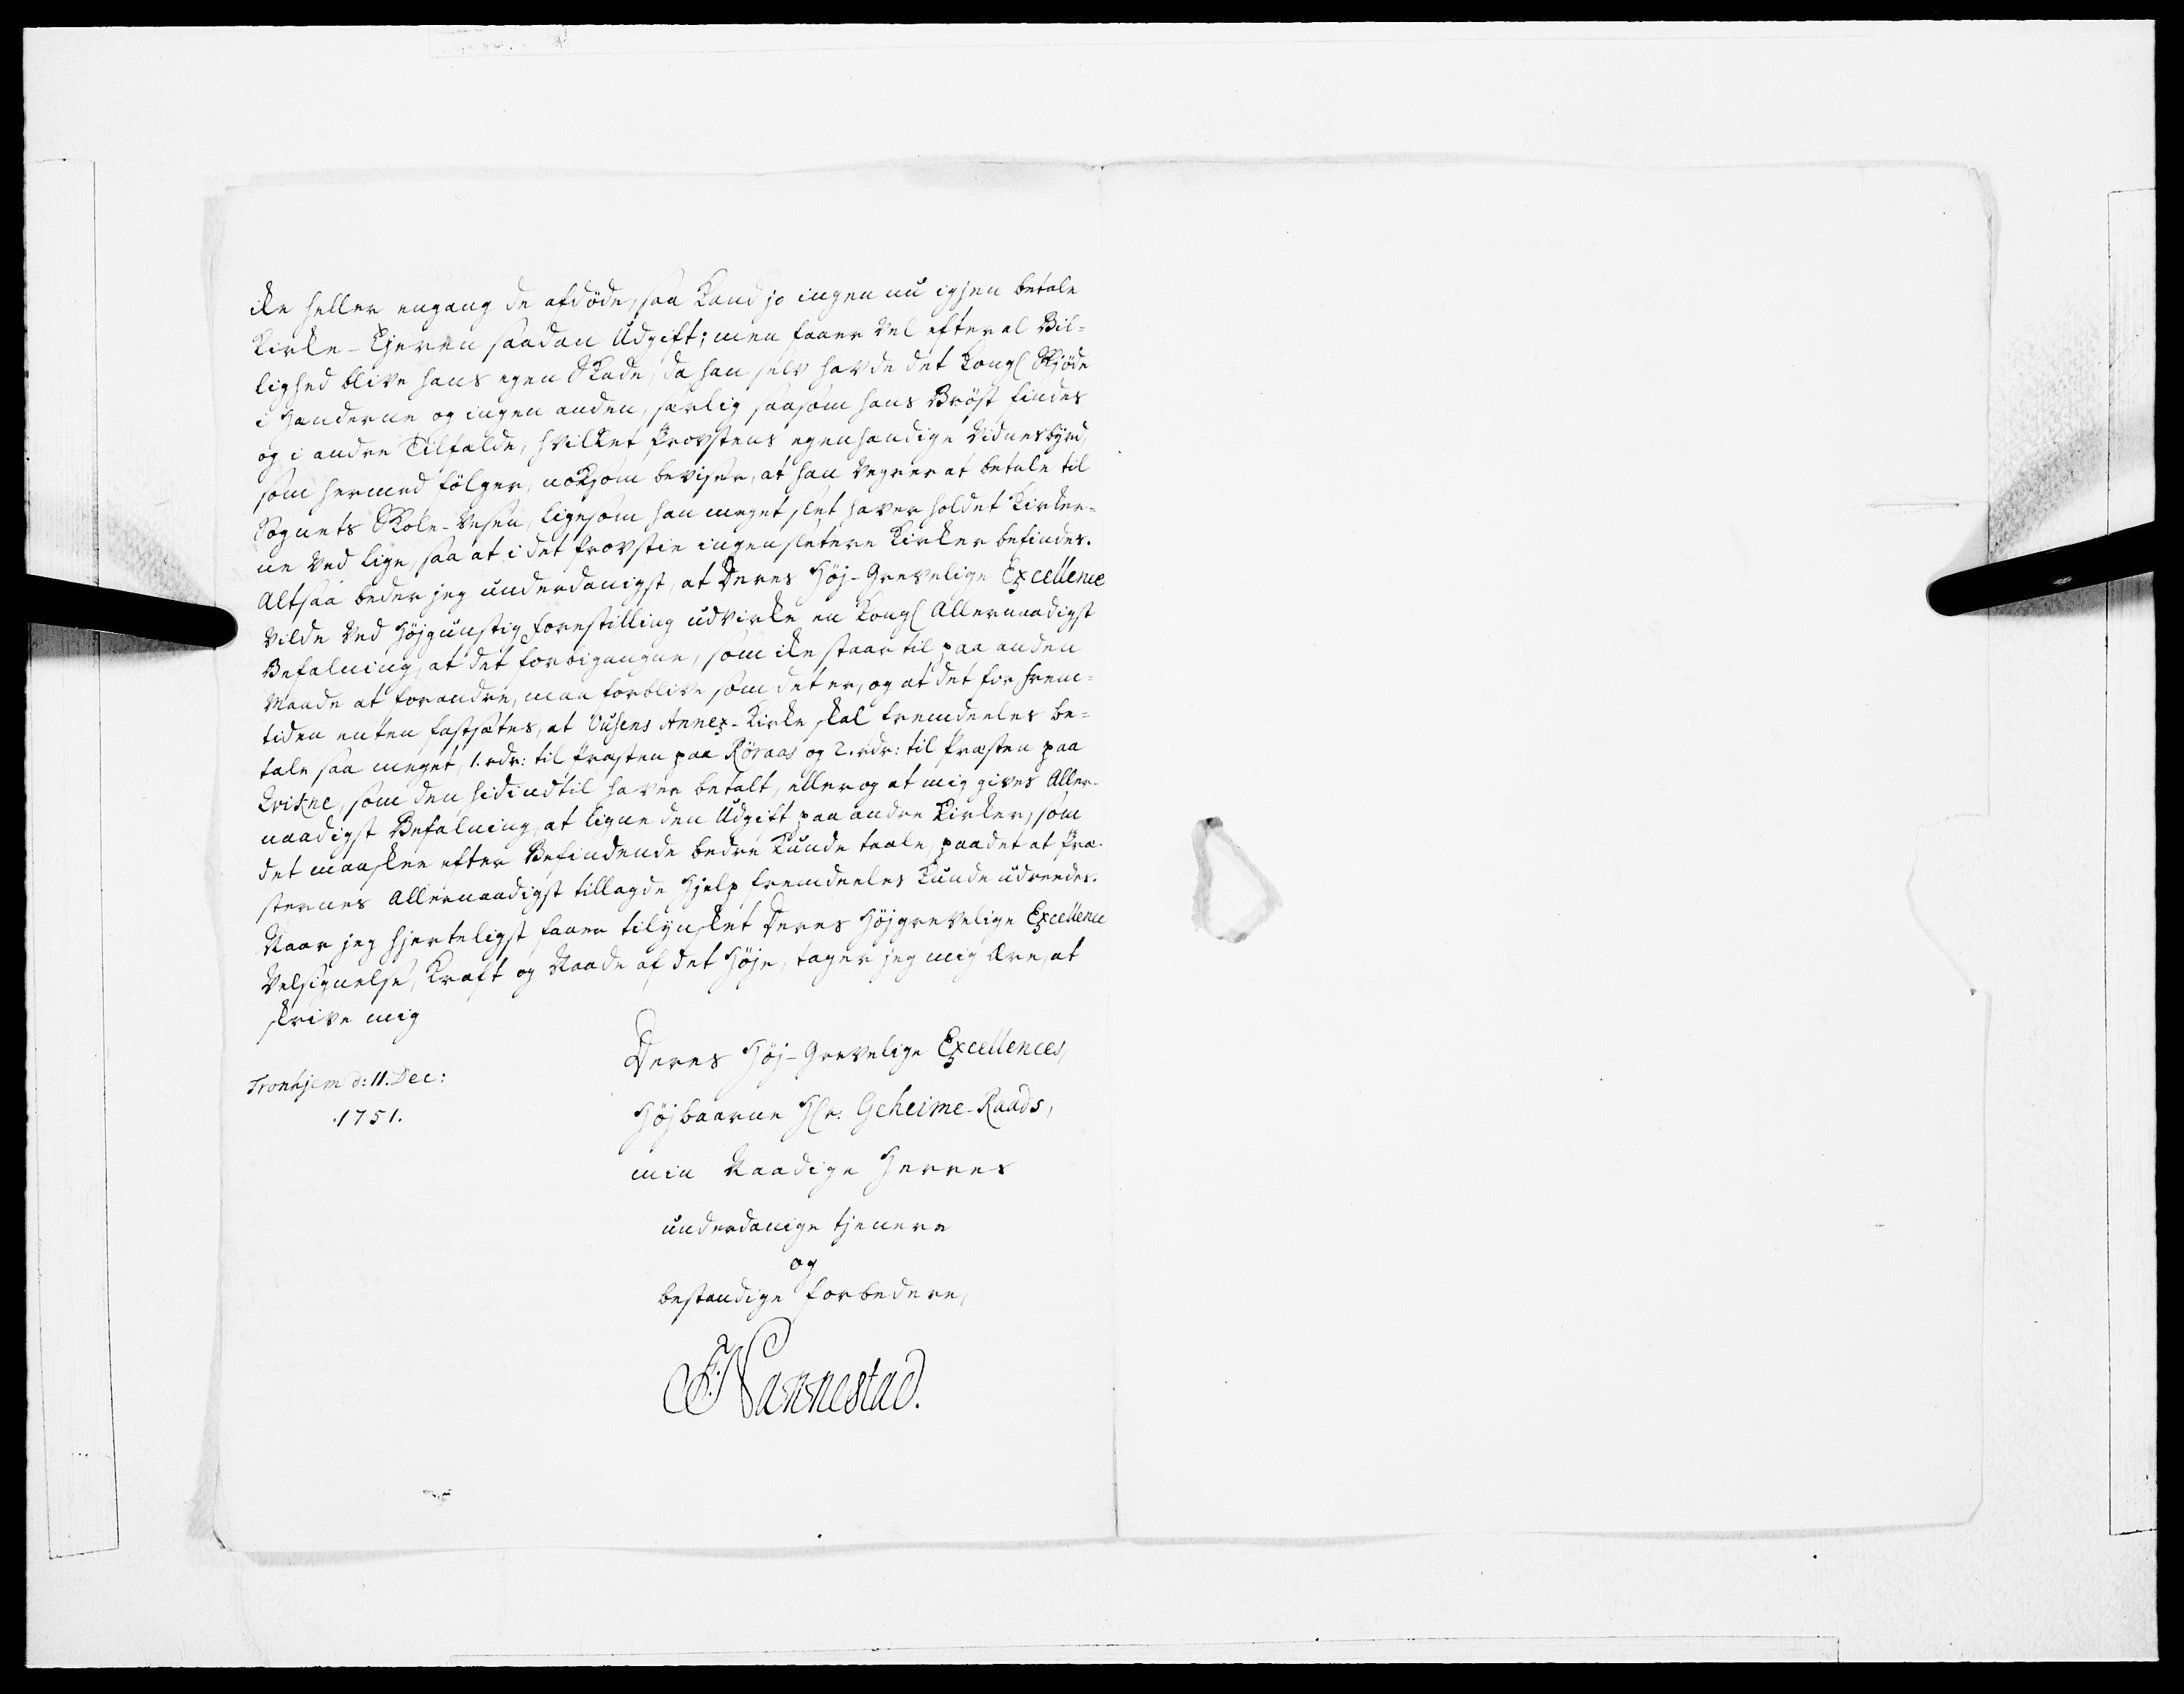 ike heller engang de afdöde, saa kand jo ingen nu igjen betale
Kirke-Ejeren saadan Udgift; men faaer vel efter al Bil-
lighed blive hans egen Skade, da han selv havde det Kongl Skjöde
i Hænderne og ingen anden, særlig saasom hans Bröst findes
og i andre Tilfælde, hvilket Provstens egenhændige Vidnesbyrd,
som hermed fölger, noksom beviser, at han vegrer at betale til
Sognets Skole-Vesen, ligesom han meget slet haver holdet Kirker-
ne ved lige, saa at i det Provstie ingen sletere Kirker befindes.
Altsaa beder jeg underdanigst, at Deres Höj-Grevelige Excellence
vilde ved Höjgunstig forestilling udvirke en Kongl Allernaadigst
Befalning, at det forbigangne, som ike staar til paa anden
Maade at forandre, maa forblive som det er, og at det for frem-
tiden enten fastsætes, at Tusens Annex-Kirke skal fremdeeles be-
tale saa meget, 1. rdr: til Præsten paa Röraas og 2. rdr: til Præsten paa
Qvikne, som den hidindtil haver betalt, eller og at mig gives Aller-
naadigst Befalning, at ligne den Udgift paa andre Kirker, som
det maaskee efter Befindende bedre kunde taale, paa det at Præ-
sternes Allernaadigst tillagde Hjelp fremdeeles kunde udreedes.
Naar jeg hjerteligst faaer tilynsket Deres Höjgrevelige Excellence
Velsignelse, Kraft og Naade af det Höje, tager jeg mig Ære, at
skrive mig
Deres Höj-Grevelige Excellences,
Tronhjem d: 11. Dec:
1751.
Höjbaarne Hr: Geheime-Raads,
min Naadige Herres
underdanige tjenere
og
bestandige forbedere,
F. Nannestad.